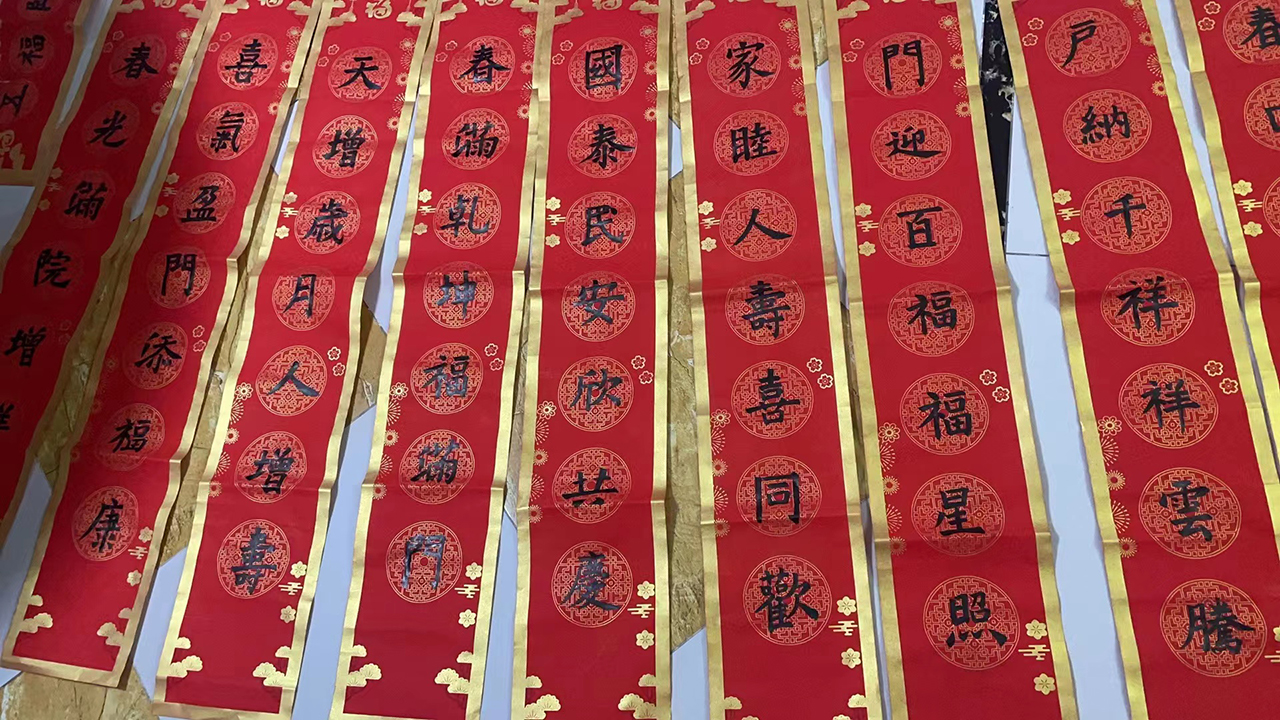 福五
春光滿院增
喜氣盈門添福康
天增歳月人增壽
春滿乾坤福滿門
國泰民安欣共慶
家睦人壽喜同歡
門迎百福福星照
戶納千祥祥雲騰
春